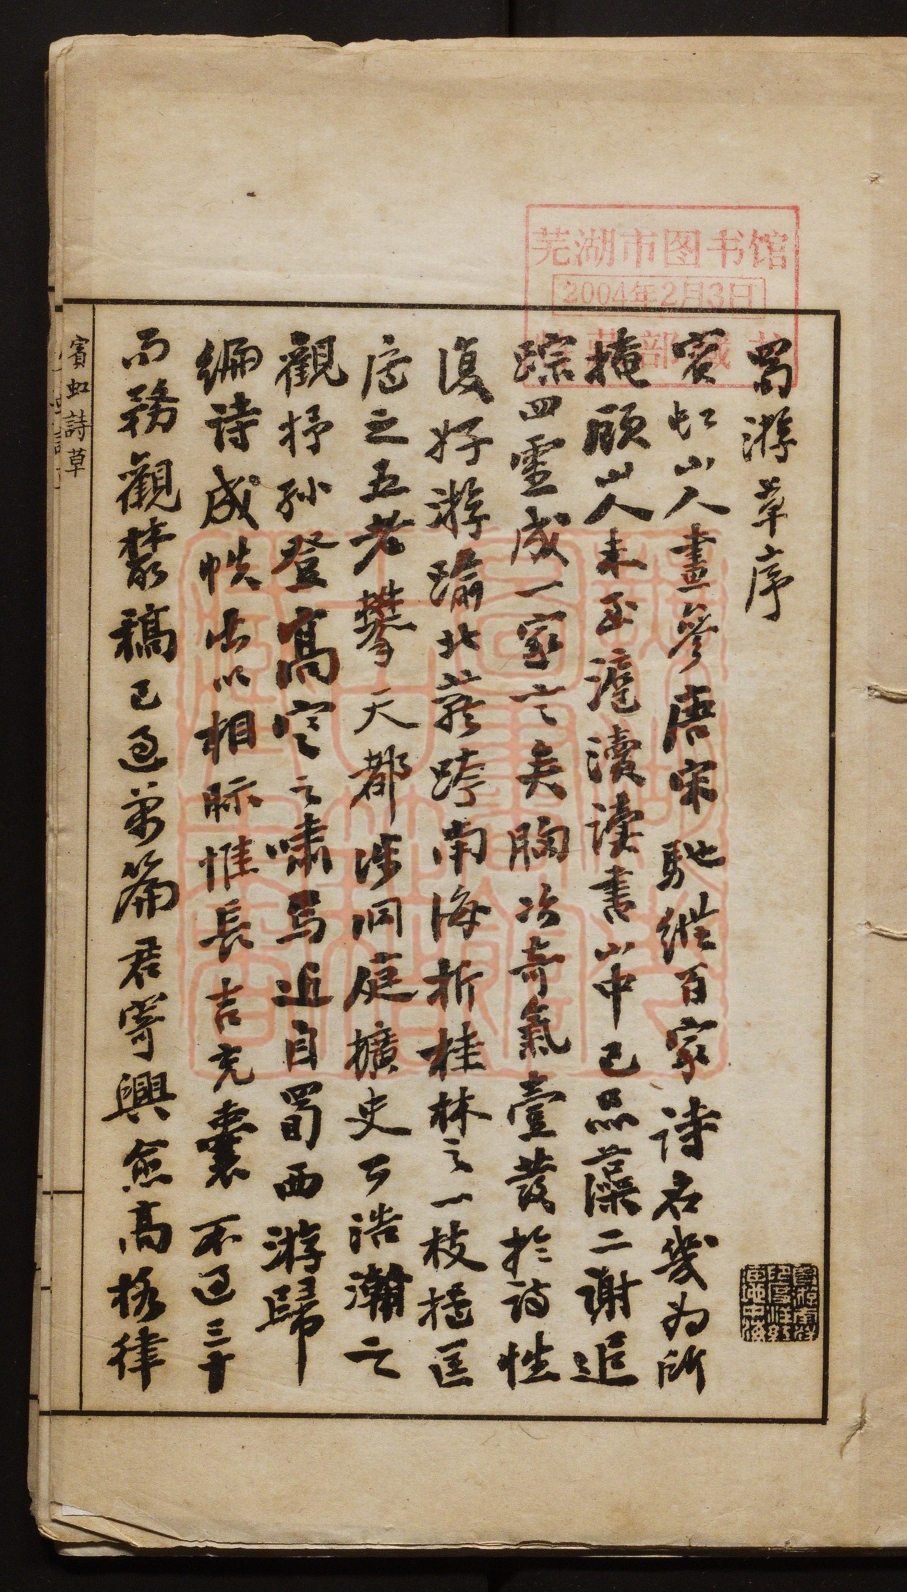 芜湖市图书馆
2004年2月3日
蜀游草序
賓虹山人畫參唐宋馳縱百家詩名幾為所
掩顧山人未至滬瀆讀書山中已品藻二謝追
踪四靈成一家言矣胸次奇氣壹發於詩性
復好游瑜北蘇跨南海折桂林之一枝搔匡
廬之五老攀天都涉洞庭擴史公浩瀚之
觀抒孫登高空之嘯焉近自蜀西游歸
編詩成帙出以相眎惟長吉充囊不過三十
而務觀叢稿已過萬篇君寄興愈高格律
賓虹詩草